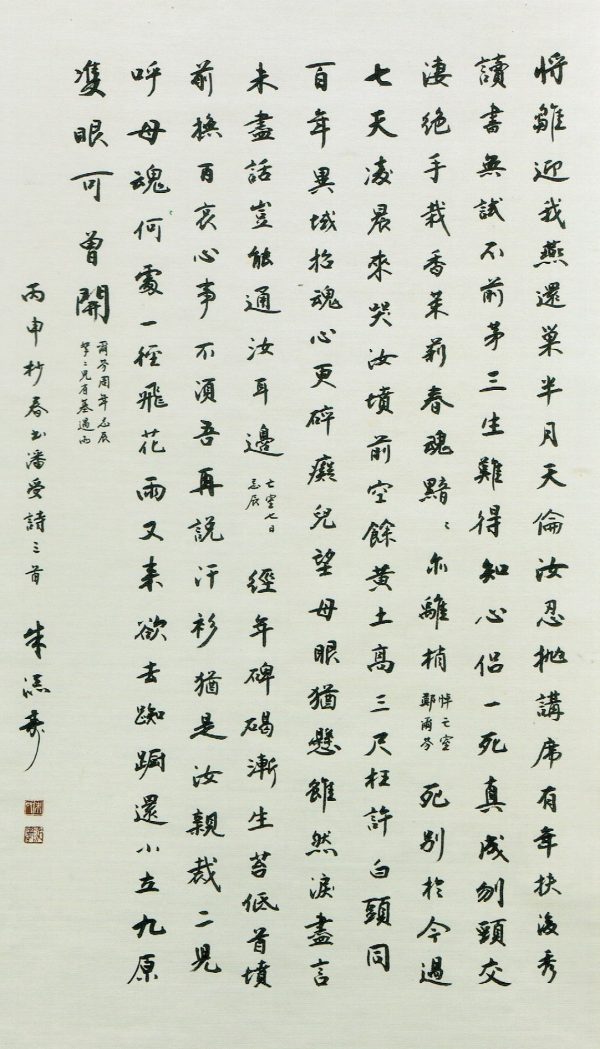 將雛迎我燕還巢半月天倫汝忍拋講席有年扶後秀
讀書無試不前茅三生難得知心侶一死真成刎頸交
淒絕手栽香茉莉春魂黯〻亦離梢
悼亡室
鄭爾芬
死別於今過
七天凌晨來哭汝墳前空餘黃土高三尺枉許白頭同
百年異域招魂心更碎癡兒望母眼猶懸雖然淚盡言
未盡話豈能通汝耳邊
亡室七日
忌辰
經年碑碣漸生苔低首墳
前撫百哀心事不須吾再說汗衫猶是汝親裁二兒
呼母魂何處一徑飛花雨又來欲去踟躕還小立九原
隻眼可曾開
爾芬周年忌辰
挈二兒省墓遇雨
丙申杪春書潘受詩三首 朱添壽